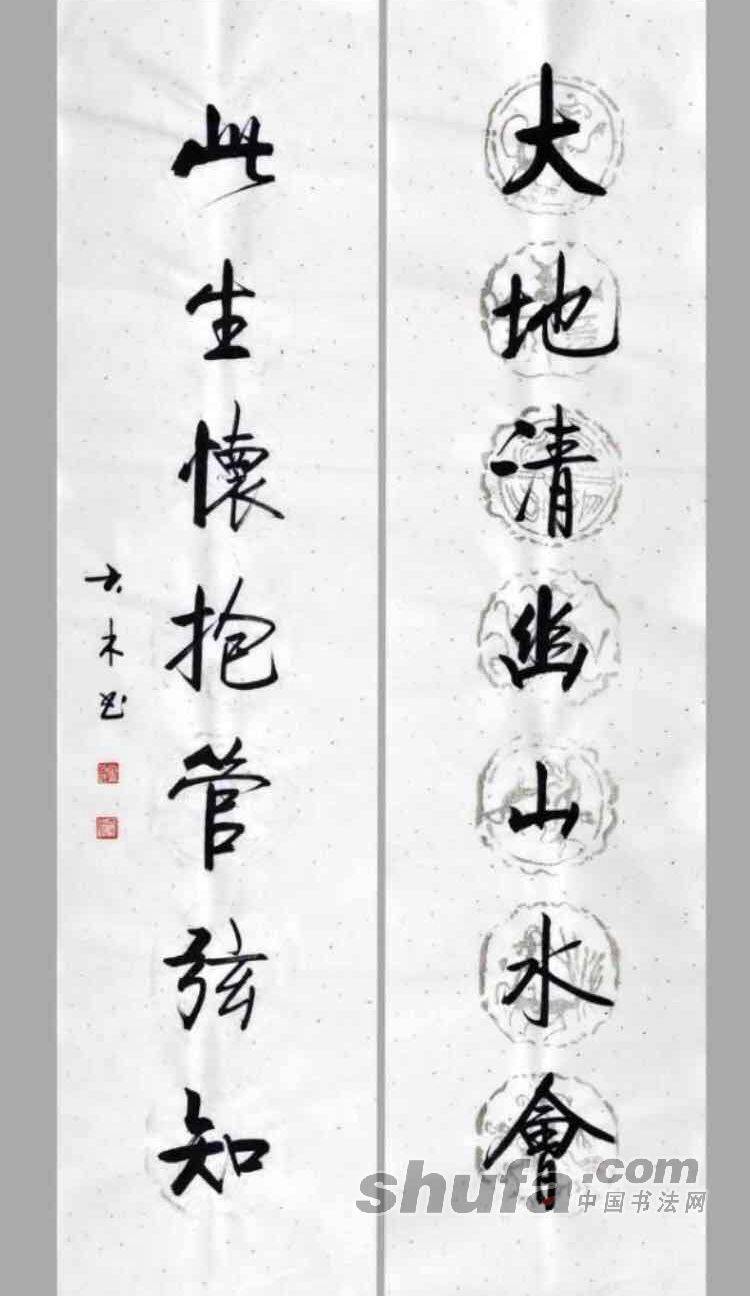 大地清幽山水會
此生懷抱管弦知
大木書
shufa.com
中国书法网